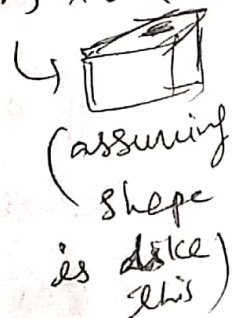 (assuming
shape
is like
this)